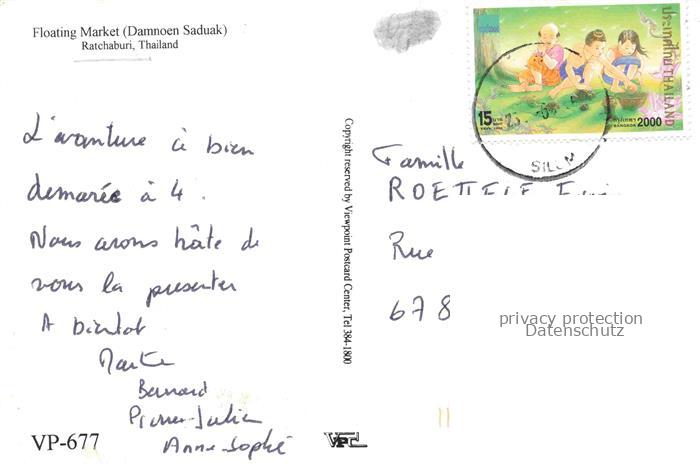 Floating Market (Damnoen Saduak)
Ratchaburi, Thailand
L'avanture à bien
demarée à 4.
Nous avons hâte de
vous la presenter
A bientot
Bernard
Pierre-Julien
Anne-Sophie
VP-677
Copyright reserved by Viewpoint Postcard Center, Tel 384-1800
VPC
ประเทศไทย THAILAND
15 บาท
BAHT
กรุงเทพฯ
BANGKOK 2000
Famille
Rue
678
privacy protection
Datenschutz